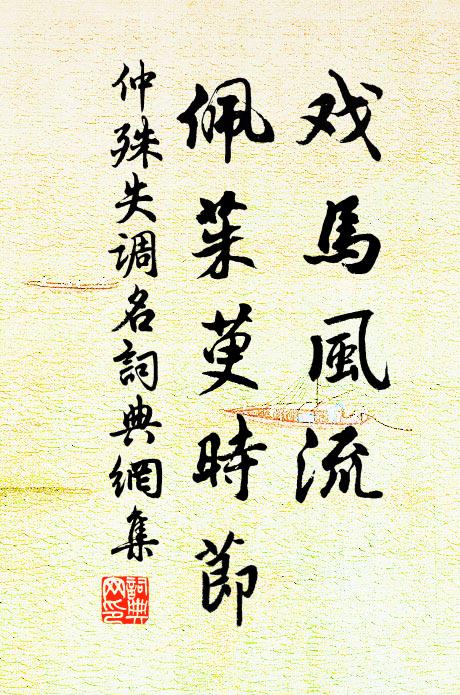 戏馬風流
佩茱萸時節
仲殊失调名詞典網集
詞典网印